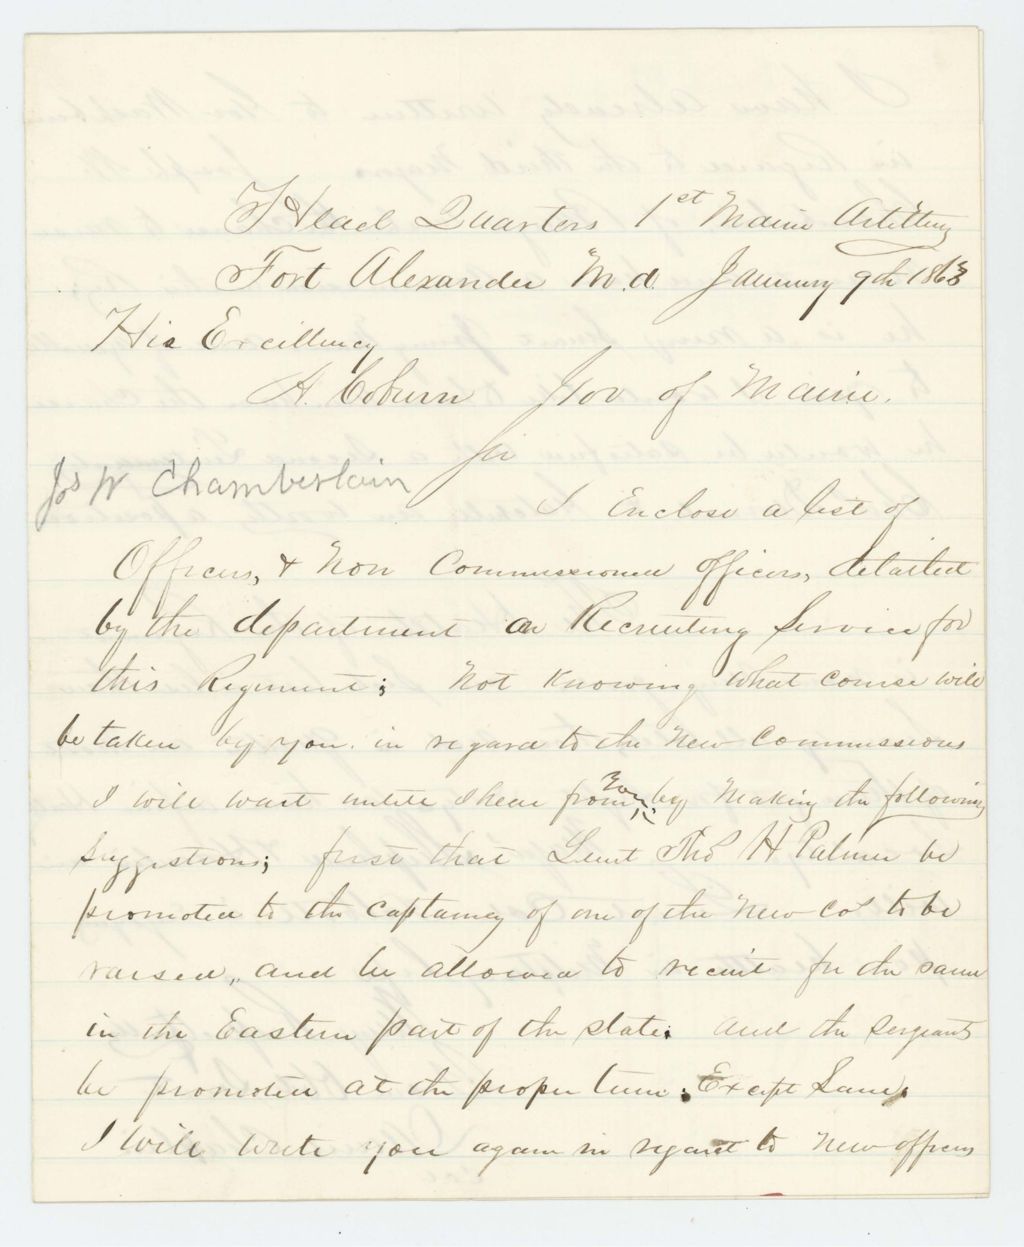 Head Quarters 1st Maine Artillery
Fort Alexander M.d. January 9th 1863
His Excellency
A. Coburn Gov of Maine.
Sir
Jos W Chamberlain
I Enclose a list of
Officers, & Non Commissioned officers, detailed
by the department on Recruiting Service for
this Regiment; Not Knowing what course will
be taken by you. in regard to the New Commissions
I will wait untill I hear from you, by Making the following
suggestions; first that Leut Tho H Palmer be
promoted to the captaincy of one of the New Cos to be
raised, and be allowed to recruit for the same
in the Eastern part of the state. and the Sergeants
be promoted at the proper time. Except
I will write you again in regard to New officers